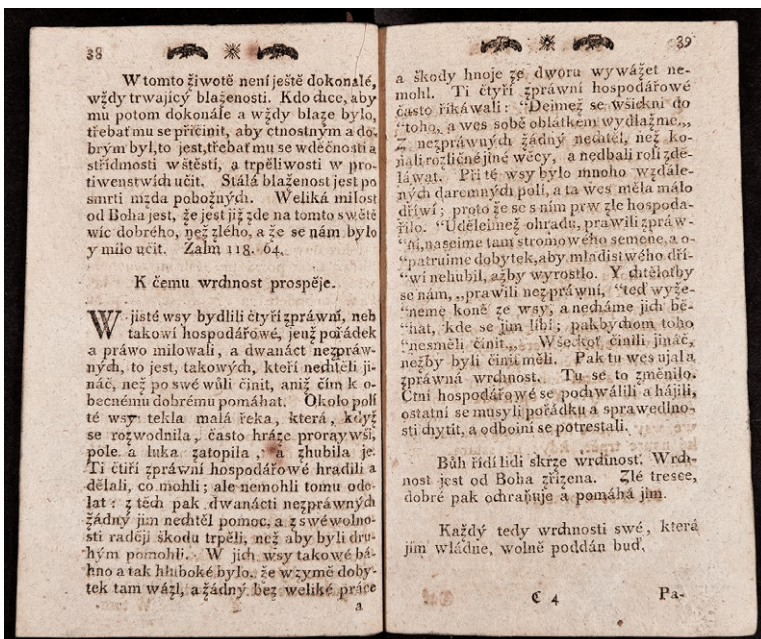 38
W tomto žiwotě není ještě dokonalé,
wždy trwajicý blaženosti. Kdo chce, aby
mu potom dokonale a wždy blaze bylo,
třebať mu se přičinit, aby ctnostným a do-
brým byl, to jest, třebať mu se wděčnosti a
střídmosti w štěstí, a trpěliwosti w pro-
tiwenstwích učit. Stálá blaženost jest po
smrti mzda pobožných. Weliká milost
od Boha jest, že jest již zde na tomto swětě
wíc dobrého, než zlého, a že se nám bylo
y milo učit. Žalm 118. 64.
K čemu wrchnost prospěje.
W jisté wsy bydlili čtyři zpráwní, neb
takowí hospodářowé, jenž pořádek
a práwo milowali, a dwanáct nezpráw-
ných, to jest, takowých, kteří nechtěli ji-
náč, než po swé wůli činit, aniž čím k o-
becnému dobrému pomáhat. Okolo polí
té wsy tekla malá řeka, která, když
se rozwodnila, často hráze proraywši,
pole a luka zatopila, a zhubila je.
Ti čtiři zpráwní hospodářowé hradili a
dělali, co mohli; ale nemohli tomu odo-
lat: z těch pak dwanácti nezpráwných
žádný jim nechtěl pomoc, a z swéwolno-
sti raději škodu trpěli, než aby byli dru-
hým pomohli. W jich wsy takowé bá-
hno a tak hluboké bylo, že w zymě doby-
tek tam wázl, a žádný bez weliké práce
a
39
a škody hnoje ze dworu wywážet ne-
mohl. Ti čtyři zpráwní hospodářowé
často řikáwali: “Dejmež se wšickni do
“toho, a wes sobě oblátkem wydlažme.„
Z nezpráwných žádný nechtěl, než ko-
nali rozličné jiné wěcy, a nedbali roli zdě-
láwat. Při té wsy bylo mnoho wzdále-
ných daremných polí, a ta wes měla málo
dříwí; proto že se s ním prw zle hospoda-
řilo. “Udělejmež ohradu, prawili zpráw-
“ní, nasejme tam stromowého semene, a o-
“patrujme dobytek, aby mladistwého dří-
“wí nehubil, ažby wyrostlo. Y chtěloťby
se nám, „prawili nezpráwní, “teď wyže-
“neme koně ze wsy, a necháme jich bě-
“hat, kde se jim líbí; pakbychom toho
“nesměli činit.„ Wšeckoť činili jináč,
nežby byli činit měli. Pak tu wes ujala
zpráwná wrchnost. Tu se to změnilo.
Ctní hospodářowé se pochwálili a hájili,
ostatní se musyli pořádku a sprawedlno-
sti chytit, a odbojní se potrestali.
Bůh řídí lidi skrze wrchnost. Wrch-
nost jest od Boha zřízena. Zlé tresce,
dobré pak ochraňuje a pomáhá jim.
Každý tedy wrchnosti swé, která
jím wládne, wolně poddán buď.
C 4
Pa-